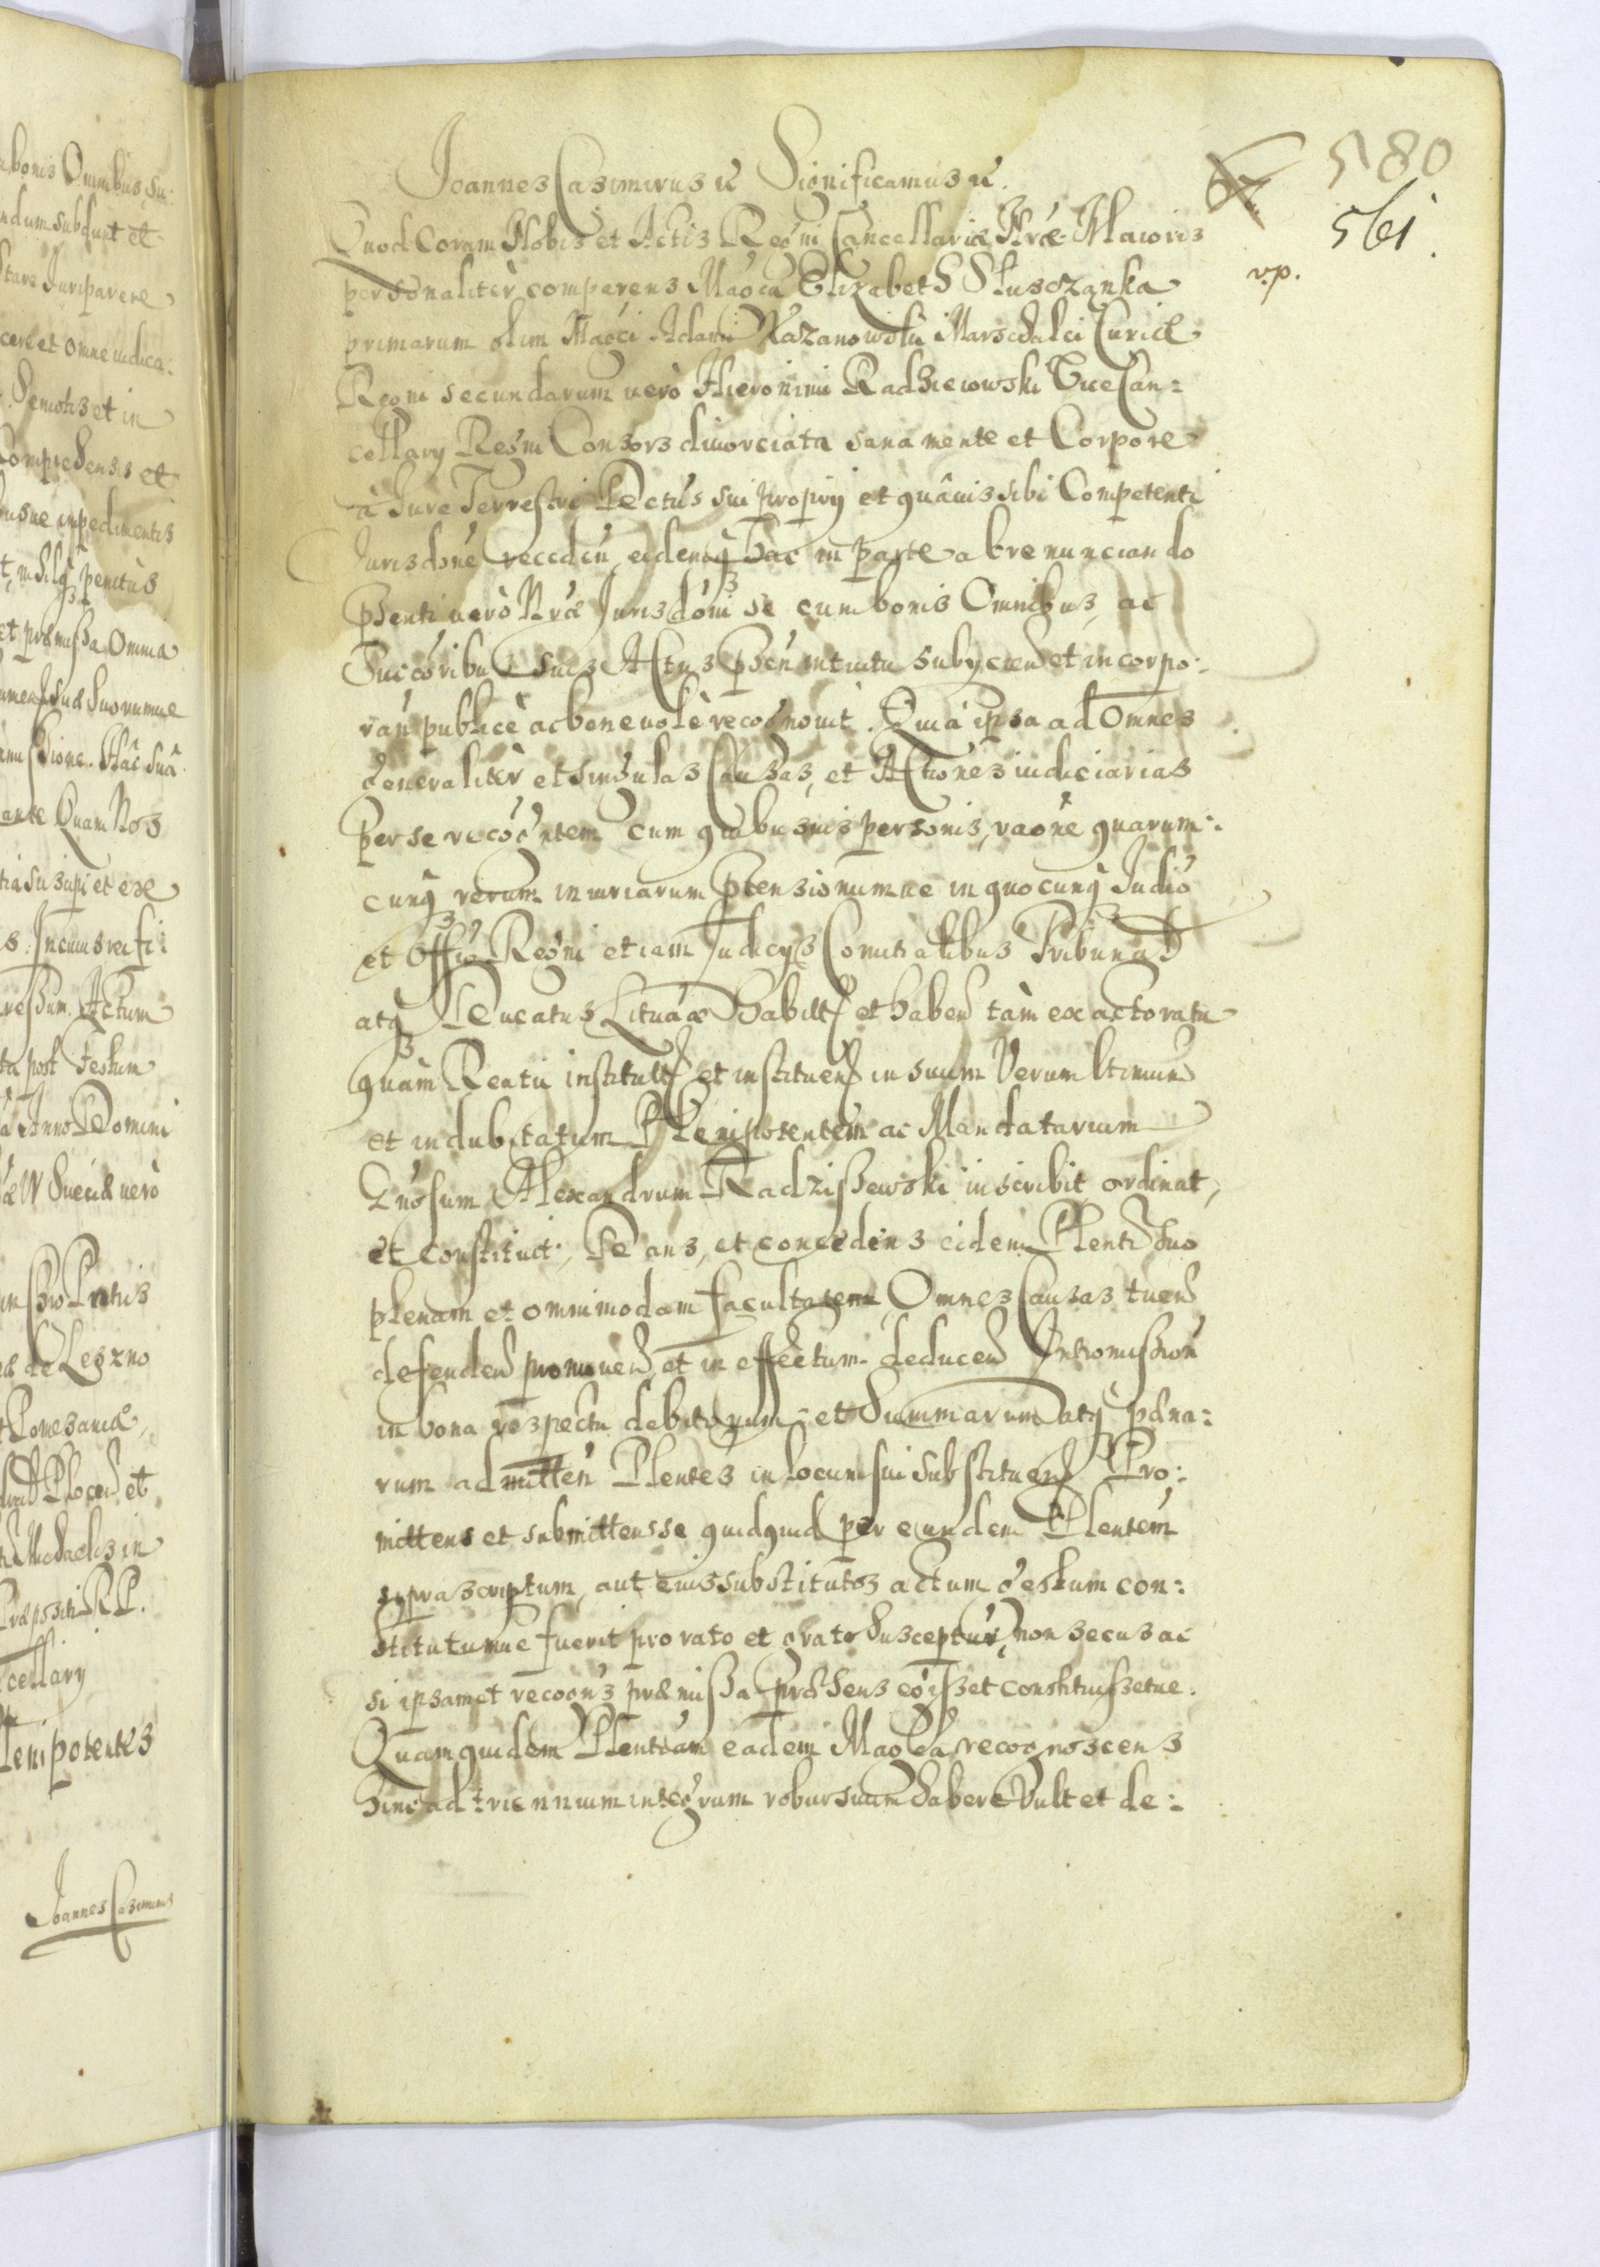 bonis Omnibus, su:
ndum subdunt et
stare Juri parere
cere et omne indica:
Semotis et in
Comprehensis et
usue impedimentis
t, nihilq penitus
et præmissa Omnia
Suæ Suorumue
Hâc Suâ
ante Quam Nos
suscipi et ex
s. In cuius rei fi:
ressum. Actum
ta post Festum
a Anno Domini
æ W Sueciæ verò
de Leszno
Pomesaniæ,
Plocen et
Michaelis in
Præpositi RP.
cellary
lenipotentes
Joannes Casimirus
580
561.
vp.
Joannes Casimirus &c Significamus &c.
Quod Coram Nobis et Actis Regni Cancellariæ Nræ Maioris
personalitèr comparens Magca Elizabeth Sluszczanka
primarum olim Magci Adami Kazanowski Marschalci Curiæ
Regni secundarum uerò Hieronimi Radzieiowski Vice Can:
cellary Regni Consors diuorciata sana mente et Corpore
à Jure Terrestri Dctus sui proprij et quâuis sibi Competenti
Jurisdone recedeń eidemq hac in parte abrenunciando
pnti uerò Nræ Jurisdoni se cum bonis Omnibus, ac
Succoribus suis Actus psen intuitu subyciend et incorpo:
rań publicè ac beneuolè recognouit. Quia ipsa ad Omnes
generalitèr et singulas Causas, et Actiones iudiciarias
Per se recogntem cum quibusuis personis, raone quarum:
cunq rerum iniuriarum ptensionumue in quocunq Judió
et Offió Regni etiam Judicys Comitialibus Tribunal
atq Ducatus Lituaæ habitt et habend tàm ex actoratu
quàm Reatu institutt et instituend in suum Verum ltimum
et indubitatum Plenipotentem ac Mandatarium
Gnosum Alexandrum Radziszewski inscribit ordinat,
et constituit, Dans, et concedens eidem Plenti Suo
plenam et omnimodam facultatem Omnes Causas tuend
defendend promouend et in effectum deducend Intromission
in bona respectu debitorum et Summarum atq pæna:
rum admitteń Plentes in locum sui substituend Pro:
mittens et submittens se quidquid per eundem Plentem
supra scriptum, aut eius substitutos actum gestum con:
stitutumue fuerit pro rato et grato Susceptur non secus ac
si ipsamet recogns præmissa præsens egisset constituissetue.
Quam quidem Plentiam eadem Magca recognoscens
hinc ad triennium integrum robur suum habere Vult et de: